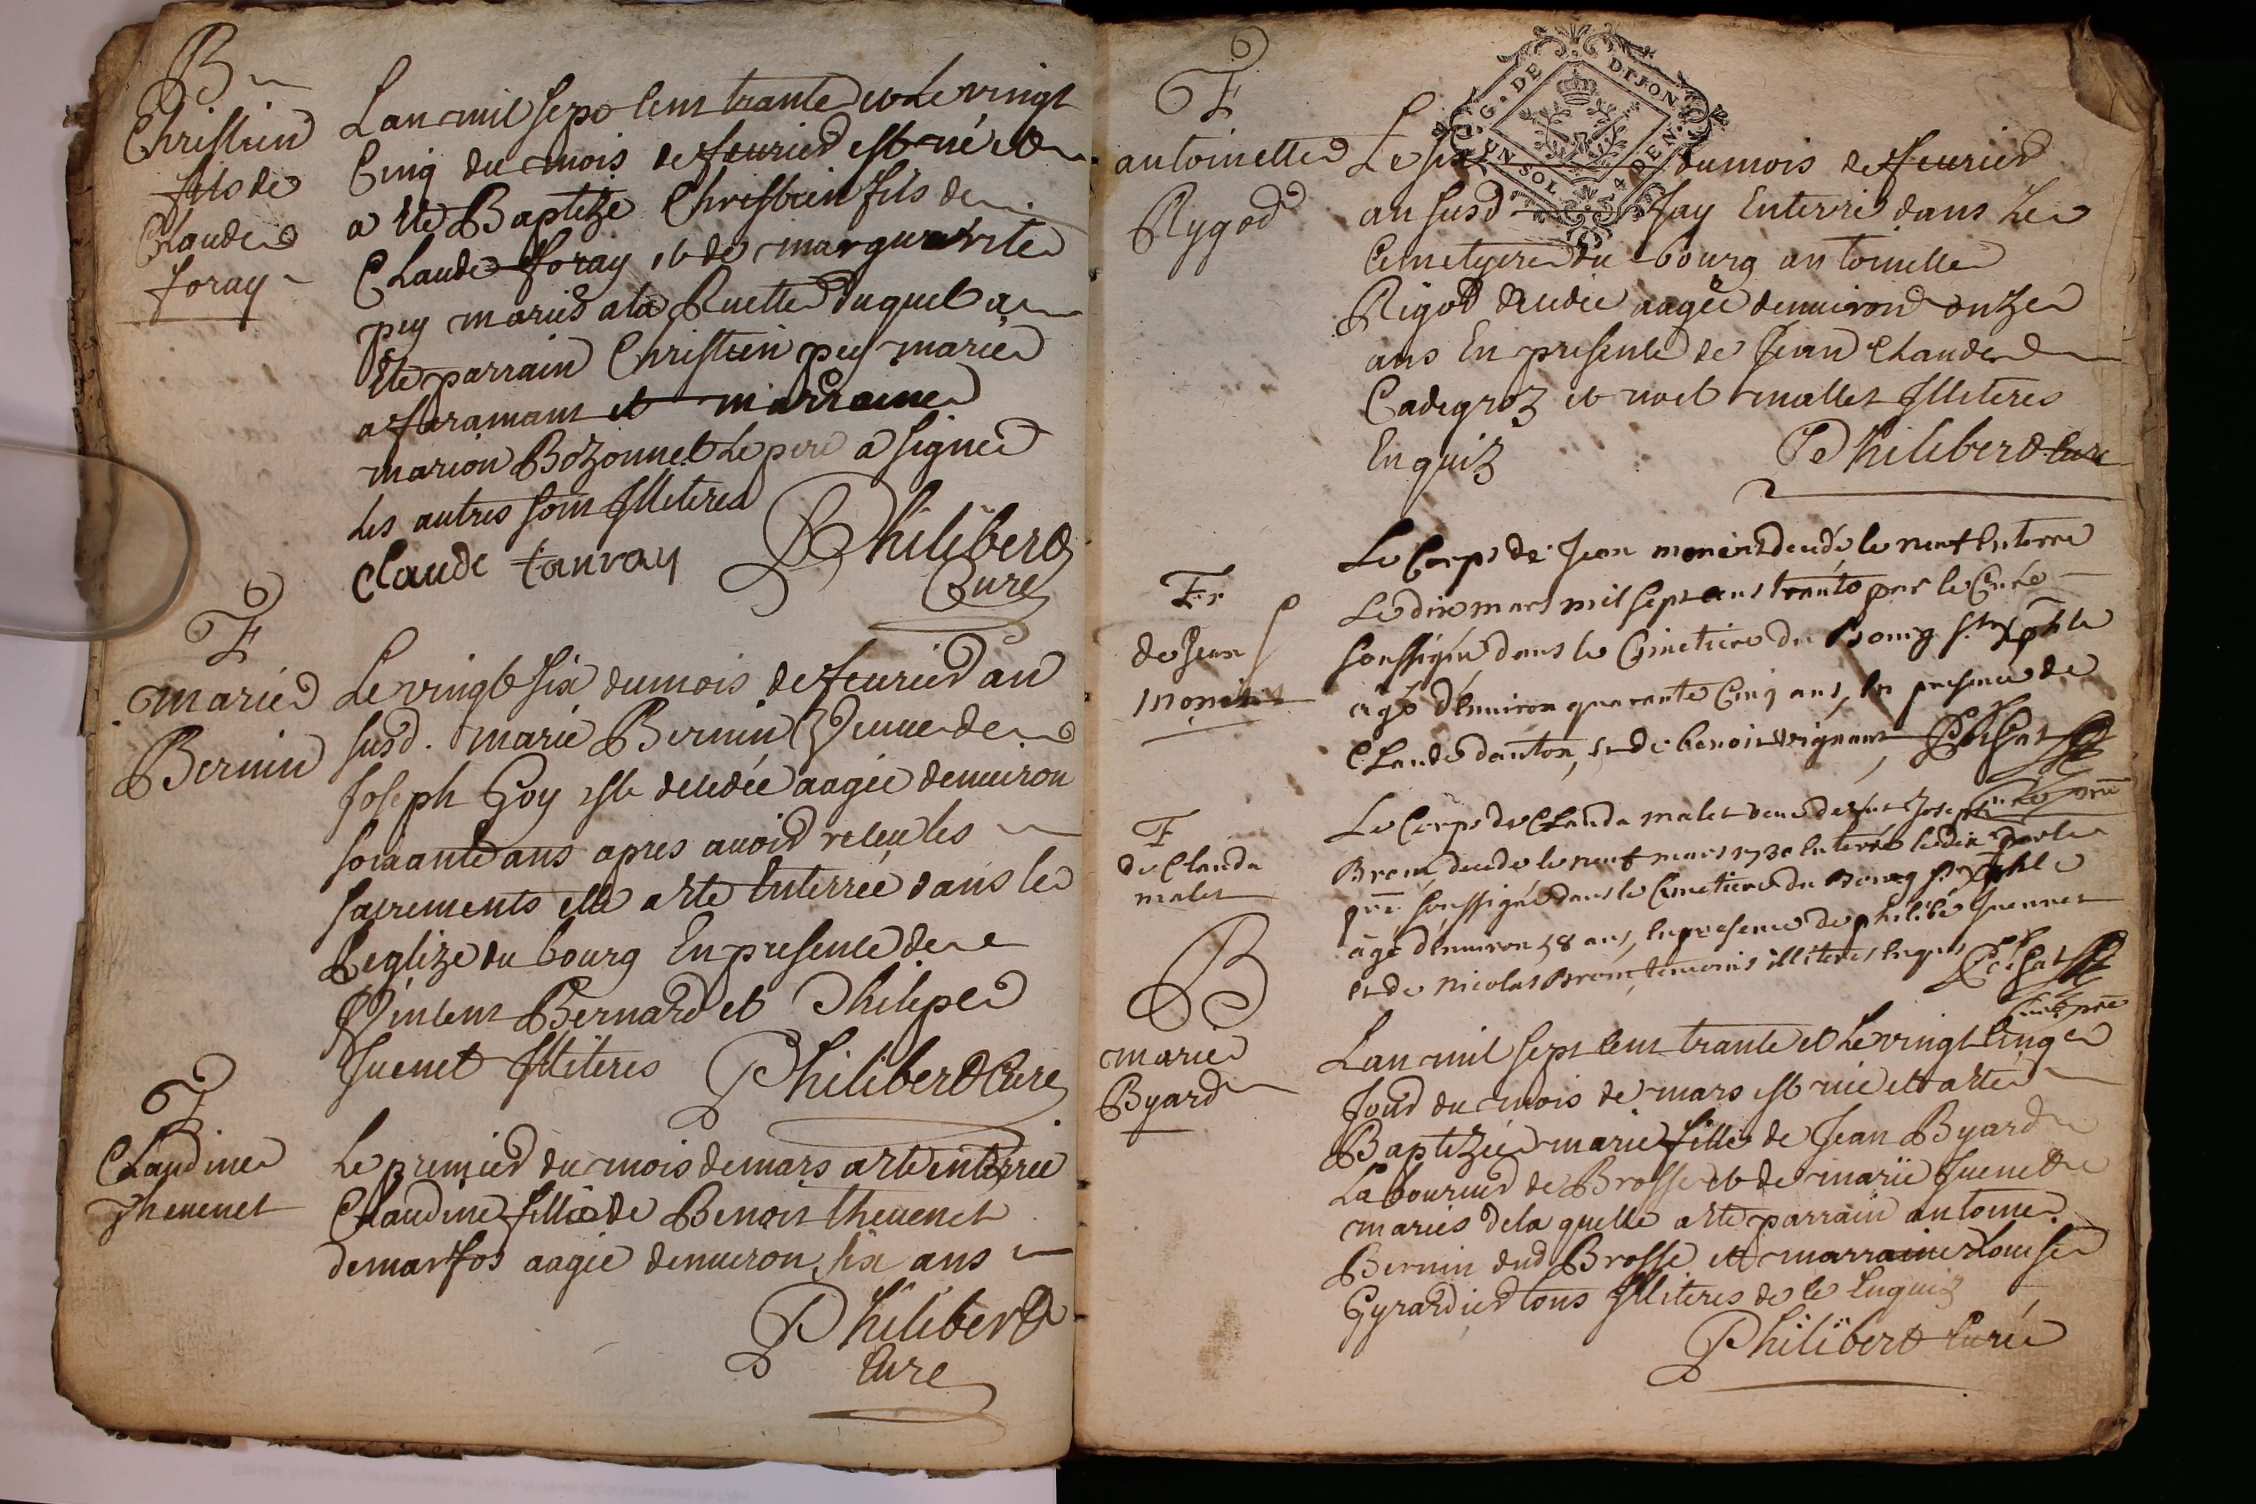 B
Christien
fils de
Claude
foray
Lan mil sept cent trante et Le vingt
Cinq du mois de feurier est né et
a ete Baptize Christien fils de
Claude foray et de marguerite
pey mariés a la Ruette duquel a
ete parrain Christien pey marié
a faramant et marraine
marion Bozonnet Le pere a signé
Les autres sont Illiteres
claude fauray
Philibert
Curé
F
marie
Bernin
Le vingt six du mois de feurier an
susd. marie Bernin Veuue de
Joseph Goy est decedée aagée denuiron
soixante ans apres auoir receu les
sacrements elle a ete Enterrée dans le
Leglize du bourg En presence de
Vincent Bernard et Philipe
Juenet Illiteres
Philibert Curé
F
Claudine
Theuenet
Le premier du mois de mars a ete enterree
Claudine fille de Benoit theuenet
de marfos aagée denuiron six ans
Philibert
Curé
F
antoinette
Rygod
G. DE DIJON
UN SOL 4 DEN.
Le six du mois de feurier
an susd Jay Enterré dans Le
Cemetyere du bourg antoinette
Rigod decedée aagée denuiron onze
ans En presence de Jean Claude
Cadegroz et noel mallet Illiteres
Enquis
Philibert Curé
Fr
de Jean
monin
Le Corps de Jean monin decedé le neuf Enterré
Le dix mars mil sept cens trante par le Curé
soussigné dans le Cimetiere du Bourg St Xphle
agé d'Enuiron quarante Cinq ans, En presence de
Claude danton, et de benoit vignant
F
de Clauda
malet
Le Corps de Clauda malet veuue de fut Joseph
Brom decede le neuf mars 1730 Enterré le dix par le
pre soussigné dans le Cimetiere du Bourg St Xphle
agé d'Enuiron 58 ans, En presence de philibé Juennet
et de nicolas Brom, temoins illiteres Enquis
Curé pre
B
marie
Byard
Lan mil sept cent trante et Le vingt Cinq
Jour du mois de mars est née et a ete
Baptizée marie fille de Jean Byard
Laboureur de Brosse et de marie Juenet
mariés de la quelle a ete parrain antoine
Bernin dud Brosse et marraine Louise
Gyrardier tous Illiteres de ce Enquis
Philibert Curé